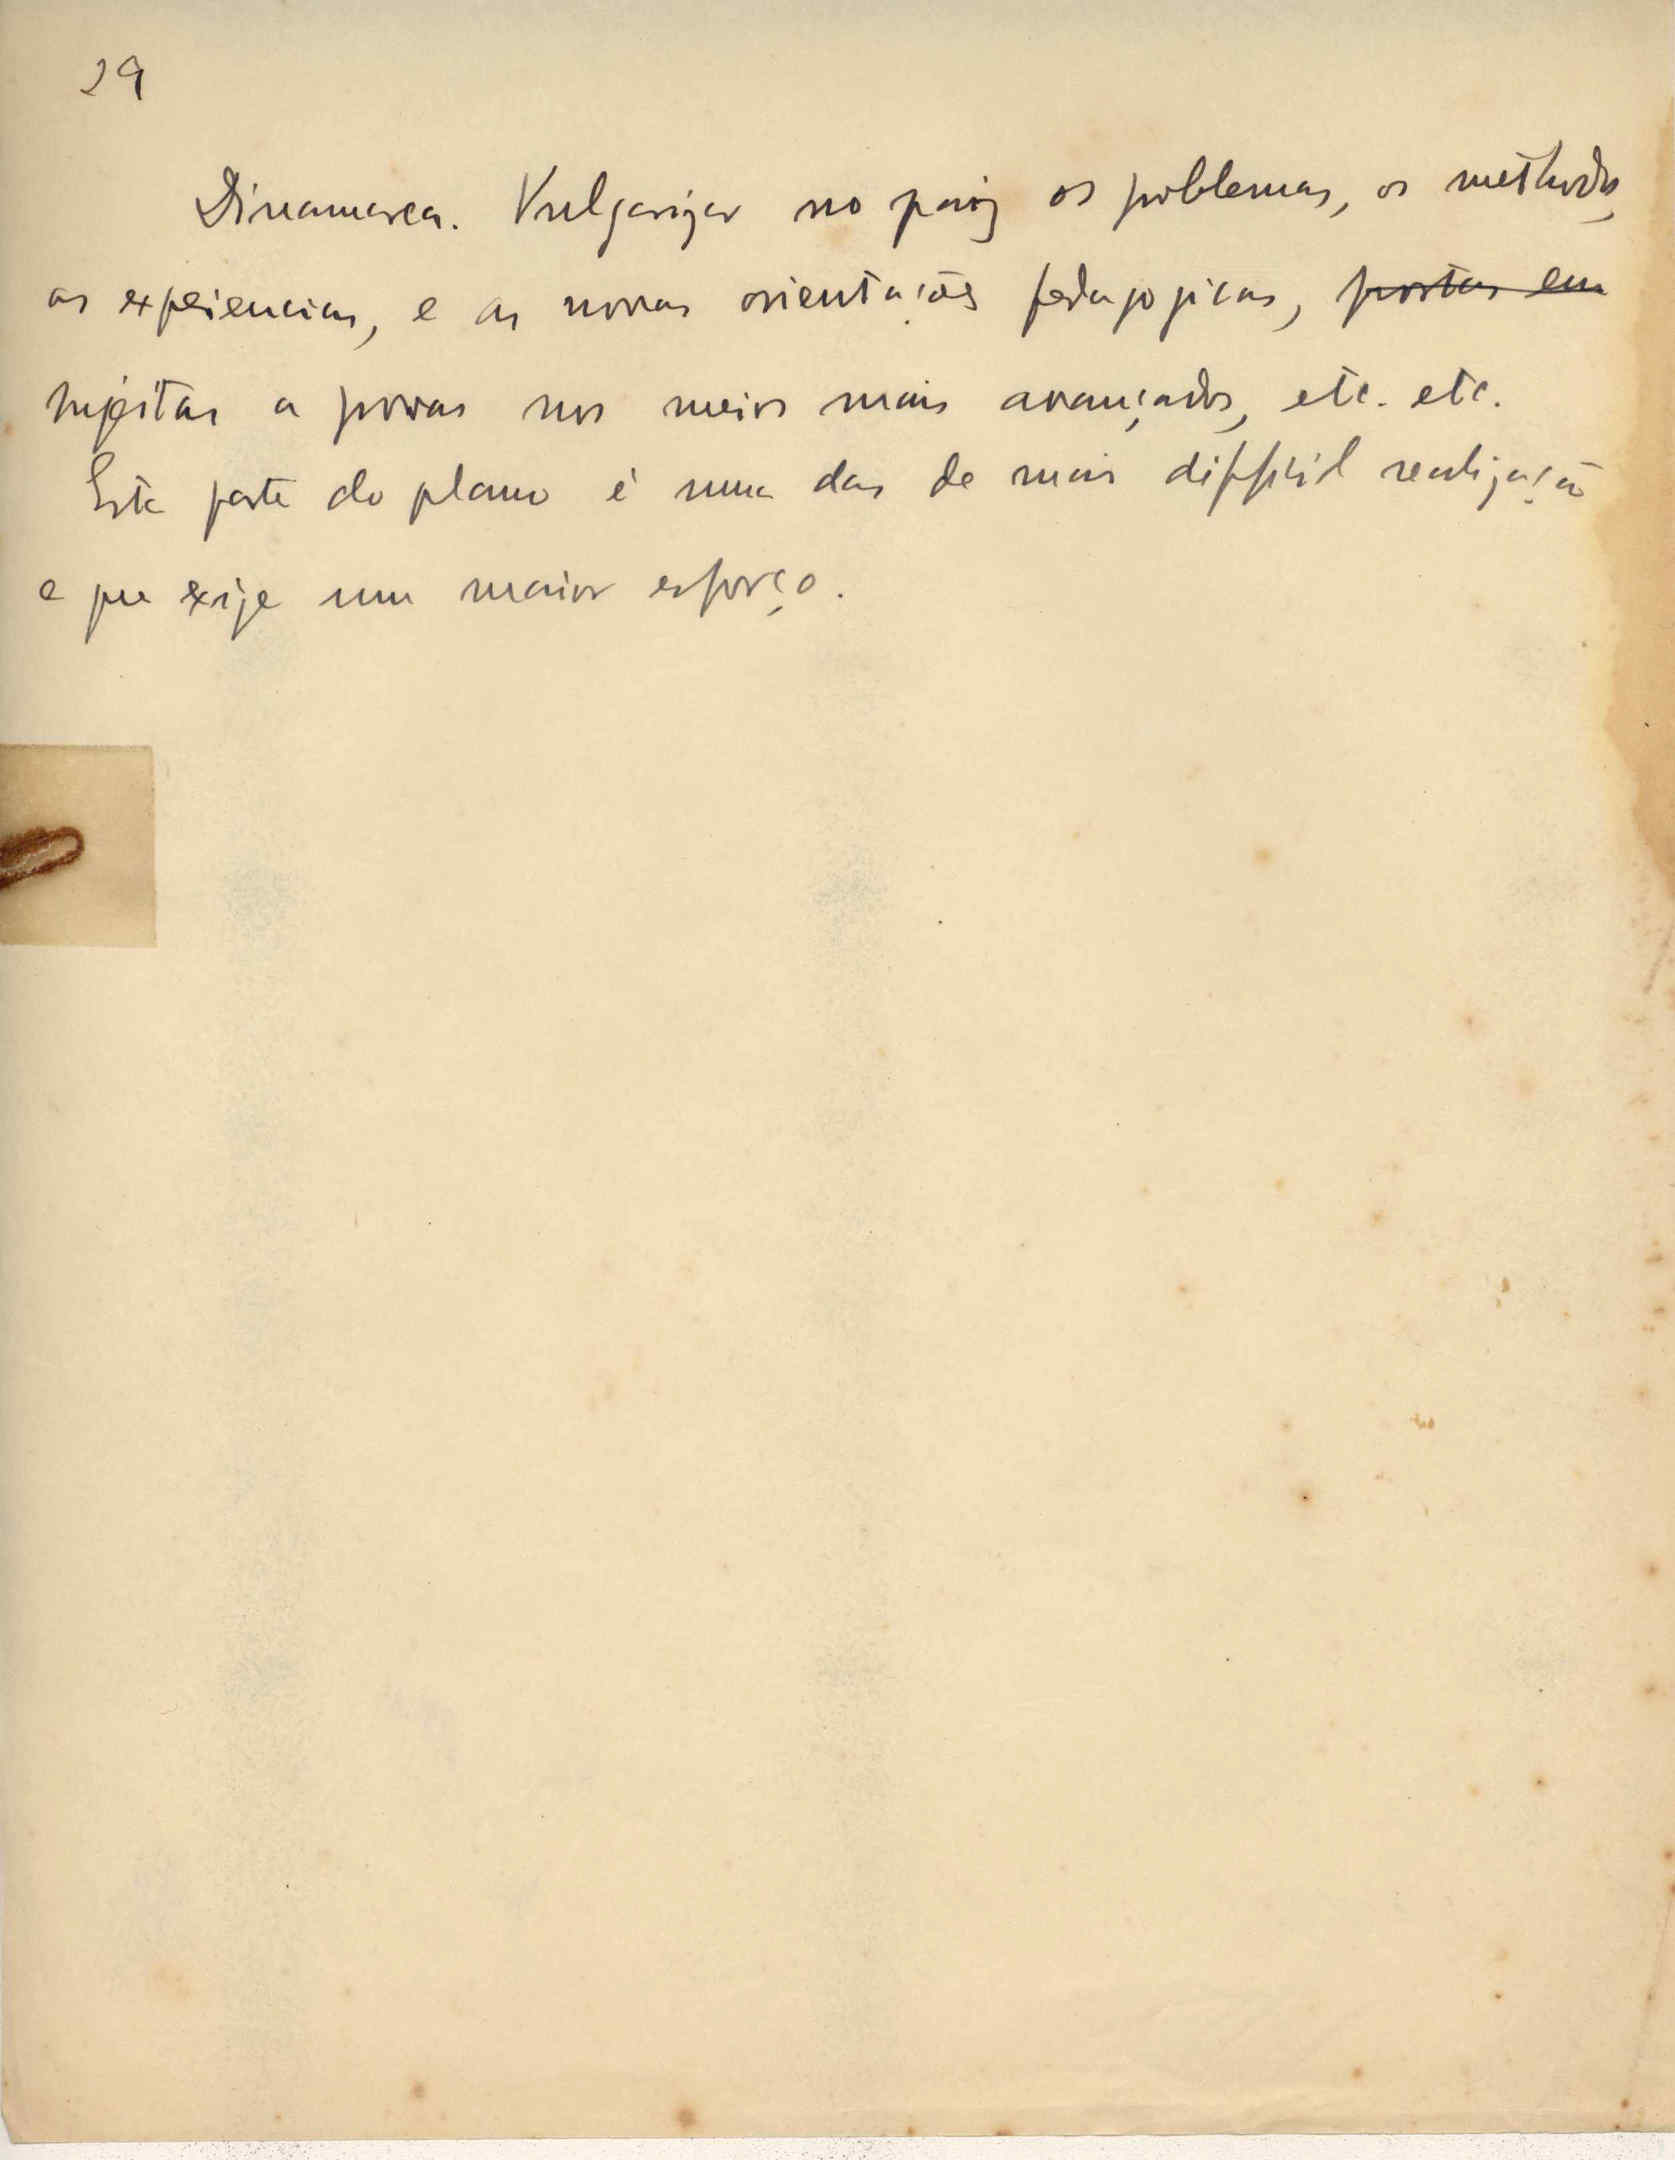 29
Dinamarca. Vulgarizar no paiz os problemas, os methodos,
as experiencias, e as novas orientações pedagogicas, postas em
sujeitas a provas nos meios mais avançados, etc. etc.
Esta parte do plano é uma das de mais difficil realização
e que exige um maior esforço.